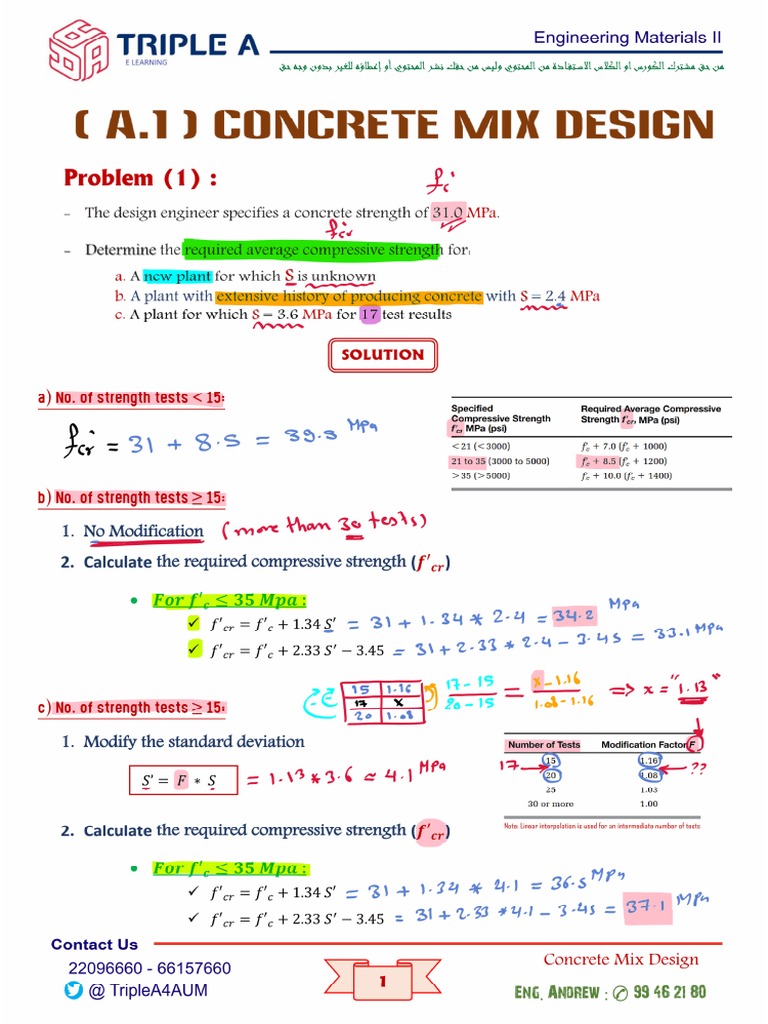 TRIPLE A
E LEARNING
Engineering Materials II
من حق مشترك الكورس او الكلاس الاستفادة من المحتوي وليس من حقك نشر المحتوي أو إعطاؤه للغير بدون وجه حق
( A.1 ) CONCRETE MIX DESIGN
Problem (1) :
f'c
- The design engineer specifies a concrete strength of 31.0 MPa.
f'cr
- Determine the required average compressive strength for:
a. A new plant for which S is unknown
b. A plant with extensive history of producing concrete with S = 2.4 MPa
c. A plant for which S = 3.6 MPa for 17 test results
SOLUTION
a) No. of strength tests < 15:
f'cr = 31 + 8.5 = 39.5 MPa
Specified Compressive Strength f'c, MPa (psi)
Required Average Compressive Strength f'cr, MPa (psi)
<21 (<3000) f'c + 7.0 (f'c + 1000)
21 to 35 (3000 to 5000) f'c + 8.5 (f'c + 1200)
>35 (>5000) f'c + 10.0 (f'c + 1400)
b) No. of strength tests ≥ 15:
1. No Modification (more than 30 tests)
2. Calculate the required compressive strength (f'cr)
• For f'c ≤ 35 Mpa :
✓ f'cr = f'c + 1.34 S' = 31 + 1.34 * 2.4 = 34.2 MPa
✓ f'cr = f'c + 2.33 S' − 3.45 = 31 + 2.33 * 2.4 − 3.45 = 33.1 MPa
c) No. of strength tests ≥ 15:
15 1.16
17 x
20 1.08
17 - 15 / 20 - 15 = x - 1.16 / 1.08 - 1.16 => x = "1.13"
1. Modify the standard deviation
S' = F * S = 1.13 * 3.6 ≈ 4.1 MPa
Number of Tests Modification Factor F
15 1.16
17 ??
20 1.08
25 1.03
30 or more 1.00
Note: Linear interpolation is used for an intermediate number of tests
2. Calculate the required compressive strength (f'cr)
• For f'c ≤ 35 Mpa :
✓ f'cr = f'c + 1.34 S' = 31 + 1.34 * 4.1 = 36.5 MPa
✓ f'cr = f'c + 2.33 S' − 3.45 = 31 + 2.33 * 4.1 − 3.45 = 37.1 MPa
Contact Us
22096660 - 66157660
@ TripleA4AUM
1
Concrete Mix Design
ENG. ANDREW : ✆ 99 46 21 80